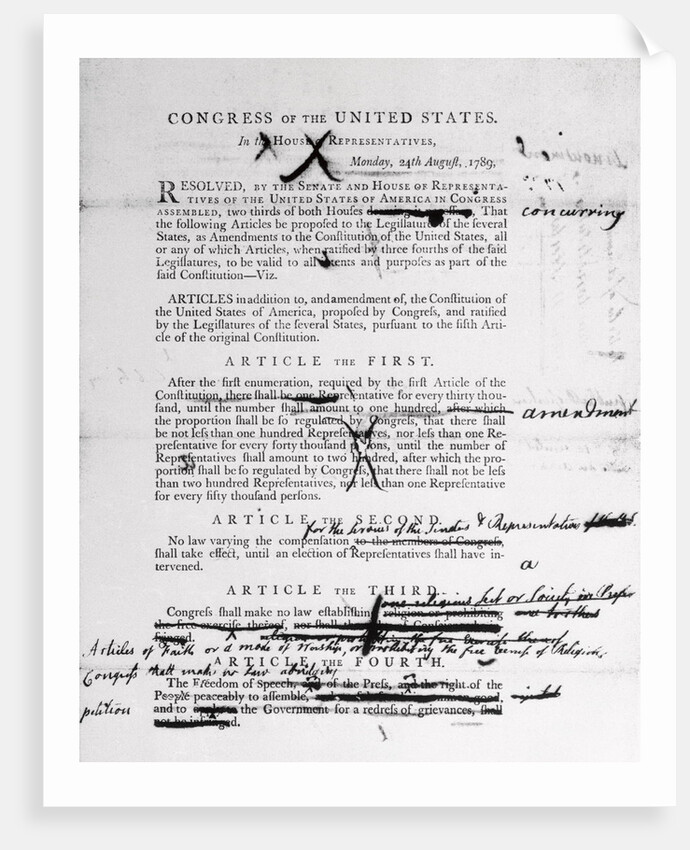 CONGRESS OF THE UNITED STATES.
In the HOUSE of REPRESENTATIVES,
Monday, 24th Auguſt, 1789,
RESOLVED, BY THE SENATE AND HOUSE OF REPRESENTA-
TIVES OF THE UNITED STATES OF AMERICA IN CONGRESS
ASSEMBLED, two thirds of both Houſes , That concurring
the following Articles be propoſed to the Legiſlatures of the ſeveral
States, as Amendments to the Conſtitution of the United States, all
or any of which Articles, when ratified by three fourths of the ſaid
Legiſlatures, to be valid to all intents and purpoſes as part of the
ſaid Conſtitution—Viz.
ARTICLES in addition to, and amendment of, the Conſtitution of
the United States of America, propoſed by Congreſs, and ratified
by the Legiſlatures of the ſeveral States, purſuant to the fifth Arti-
cle of the original Conſtitution.
ARTICLE THE FIRST.
After the firſt enumeration, required by the firſt Article of the
Conſtitution, there ſhall be one Repreſentative for every thirty thou-
ſand, until the number ſhall amount to one hundred, after which amendment
the proportion ſhall be ſo regulated by Congreſs, that there ſhall
be not leſs than one hundred Repreſentatives, nor leſs than one Re-
preſentative for every forty thouſand perſons, until the number of
Repreſentatives ſhall amount to two hundred, after which the pro-
portion ſhall be ſo regulated by Congreſs, that there ſhall not be leſs
than two hundred Repreſentatives, nor leſs than one Repreſentative
for every fifty thouſand perſons.
ARTICLE THE SECOND.
for the ſervices of the Senators & Representatives
No law varying the compenſation to the members of Congreſs,
ſhall take effect, until an election of Repreſentatives ſhall have in-
tervened. a
ARTICLE THE THIRD.
one religious Sect or Society in
Congreſs ſhall make no law eſtabliſhing religion or prohibiting
the free exerciſe thereof, nor ſhall the
fringed.
Articles of Faith or a mode of Worship, or prohibiting the free exercise of Religion,
ARTICLE THE FOURTH.
Congreſs shall make no law abridging
The Freedom of Speech, and of the Preſs, and the right of the
People peaceably to aſſemble,
petition and to the Government for a redreſs of grievances, ſhall
not be infringed.